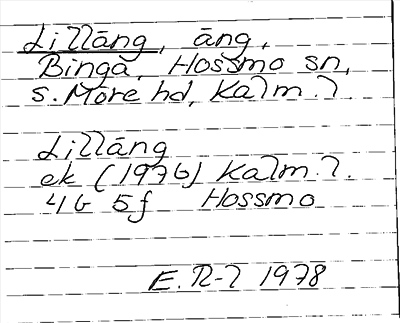 Lilläng, äng,
Binga, Hossmo sn,
S. Möre hd, Kalm. l.
Lilläng
ek (1976) Kalm. l.
4G 5f Hossmo
E. R-l 1978